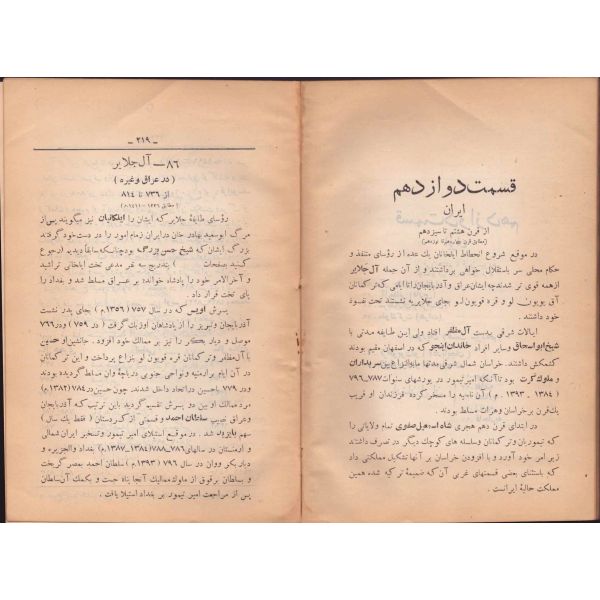 قسمت دوازدهم
ایران
از قرن هشتم تا سیزدهم
(مطابق قرن چهاردهم تا نوزدهم)
در موقع شروع انحطاط ایلخانان یك عده از رؤسای متنفذ و
حکام محلی سر باستقلال خواهی برداشتند و از آن جمله آل جلایر
ازهمه قوی تر شد‌ند‌چه ایشان عراق و آذربایجان را تا ایامی که ترکمانان
آق قویونلو و قره قویونلو بجای جلایریه نشستند تحت نفوذ
خود داشتند.
ایالات شرقی بدست آل مظفر افتاد ولی این طایفه مدتی با
شیخ ابو اسحاق و سایر افراد خاندان اینجو که در اصفهان مقیم بودند
کشمکش داشتند. خراسان شمال شرقی مدتها مابه‌النزاع بین سربداران
و ملوك کرت بود تا آنکه امیر تیمور در یورشهای سنوات ۷۸۷ـ۷۹۶
(۱۳۸۴ - ۱۳۹۳ م) آن ناحیه را مسخر کرده فرزندان او قریب
یك قرن بر خراسان و هرات مسلط بودند.
در ابتدای قرن دهم هجری شاه اسمعیل صفوی تمام ولایاتی را
که تیموریان و ترکمانان و سلسله های کوچك دیگر در تصرف داشتند
زیر امر خود آورد و با افزودن خراسان بر آنها تشکیل مملکتی داد
که باستثنای بعضی قسمتهای غربی آن که ضمیمهٔ ترکیه شده همین
مملکت حالیهٔ ایرانست.
ـ ۲۱۹ ـ
۸۶ ـ آل جلایر
(در عراق و غیره)
از ۷۳۶ تا ۸۱۴
رؤسای طایفهٔ جلایر که ایشان را ایلکانیان نیز میگویند پس از
مرگ ابوسعید بهادر خان در ایران زمام امور را در دست خود گرفتند
بزرگ ایشان که شیخ حسن بزرگ بود چنانکه سابقاً دیدیم (رجوع
کنید بصفحات ) بتدریج سه نفر مدعی تخت ایلخانی تراشید
و آخرالامر خود را پادشاه خوانده بر عراق مسلط شد و بغداد را
پای تخت قرار داد.
پسرش اویس که در سال ۷۵۷ (۱۳۵۶ م) بجای پدر نشست
آذربایجان و تبریز را از پادشاهان اوزبك گرفت (در ۷۵۹) و در ۷۶۶
موصل و دیار بکر را نیز بر ممالك خود افزود. جانشین او حسین
با آل مظفر و ترکمانان قره قویونلو بنزاع پرداخت و این ترکمانان
در آن ایام بر ارمنیه و نواحی جنوبی دریاچهٔ وان مسلط گردیده بودند
ودر ۷۷۹ با حسین در اتحاد داخل شدند. چون حسین در ۷۸۴ (۱۳۸۲ م)
مرد ممالك او بین دو پسرش تقسیم گردید باین ترتیب که آذربایجان
وعراق نصیب سلطان احمد و قسمتی از کردستان (فقط یك سال)
سهم بایزید شد. در موقع استیلای امیر تیمور و تسخیر ایران شمالی
و ارمنستان در سالهای ۷۸۶ـ۷۸۸ (۱۳۸۴ـ۱۳۸۷ م) بغداد والجزیره و
دیار بکر و وان در سال ۷۹۶ (۱۳۹۳ م) سلطان احمد بمصر گریخت
و بسلطان برقوق از ملوك ممالیك آنجا پناه جست و بکمك آن سلطان
پس از مراجعت امیر تیمور بر بغداد استیلا یافت.